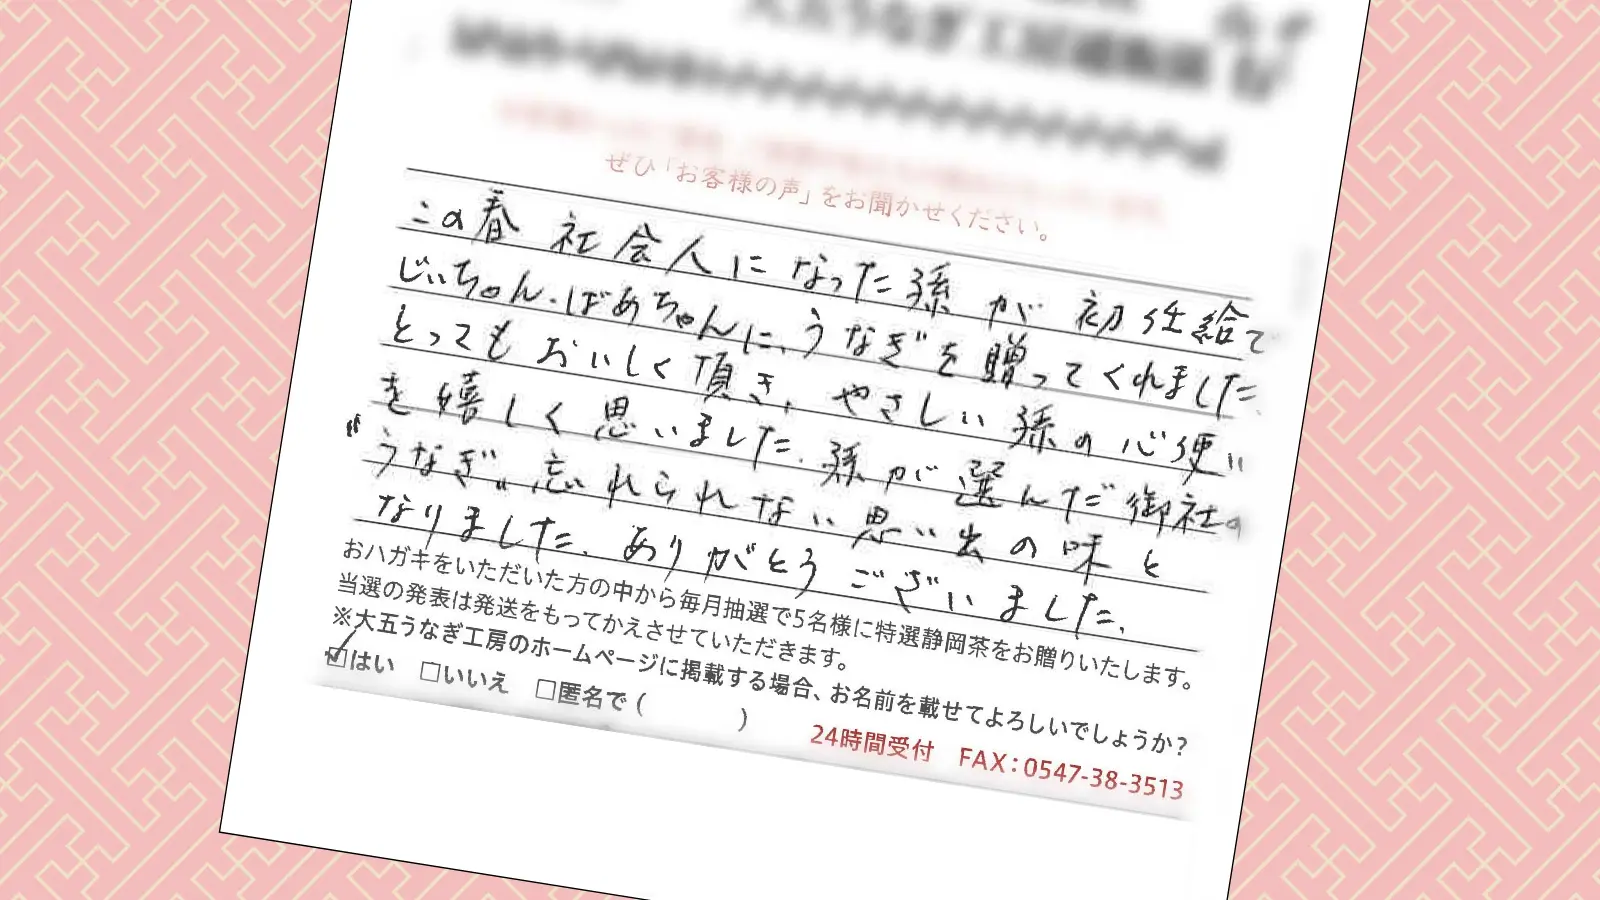 大五うなぎ工房通販課 行
ぜひ「お客様の声」をお聞かせください。
この春 社会人になった孫が初任給で
じいちゃん.ばあちゃんに、うなぎを贈ってくれました.
とってもおいしく頂き、やさしい孫の心使い
を嬉しく思いました.孫が選んだ御社の
“うなぎ„忘れられない思い出の味と
なりました.ありがとうございました.
おハガキをいただいた方の中から毎月抽選で5名様に特選静岡茶をお贈りいたします。
当選の発表は発送をもってかえさせていただきます。
※大五うなぎ工房のホームページに掲載する場合、お名前を載せてよろしいでしょうか?
☑はい □いいえ □匿名で( )
24時間受付 FAX:0547-38-3513